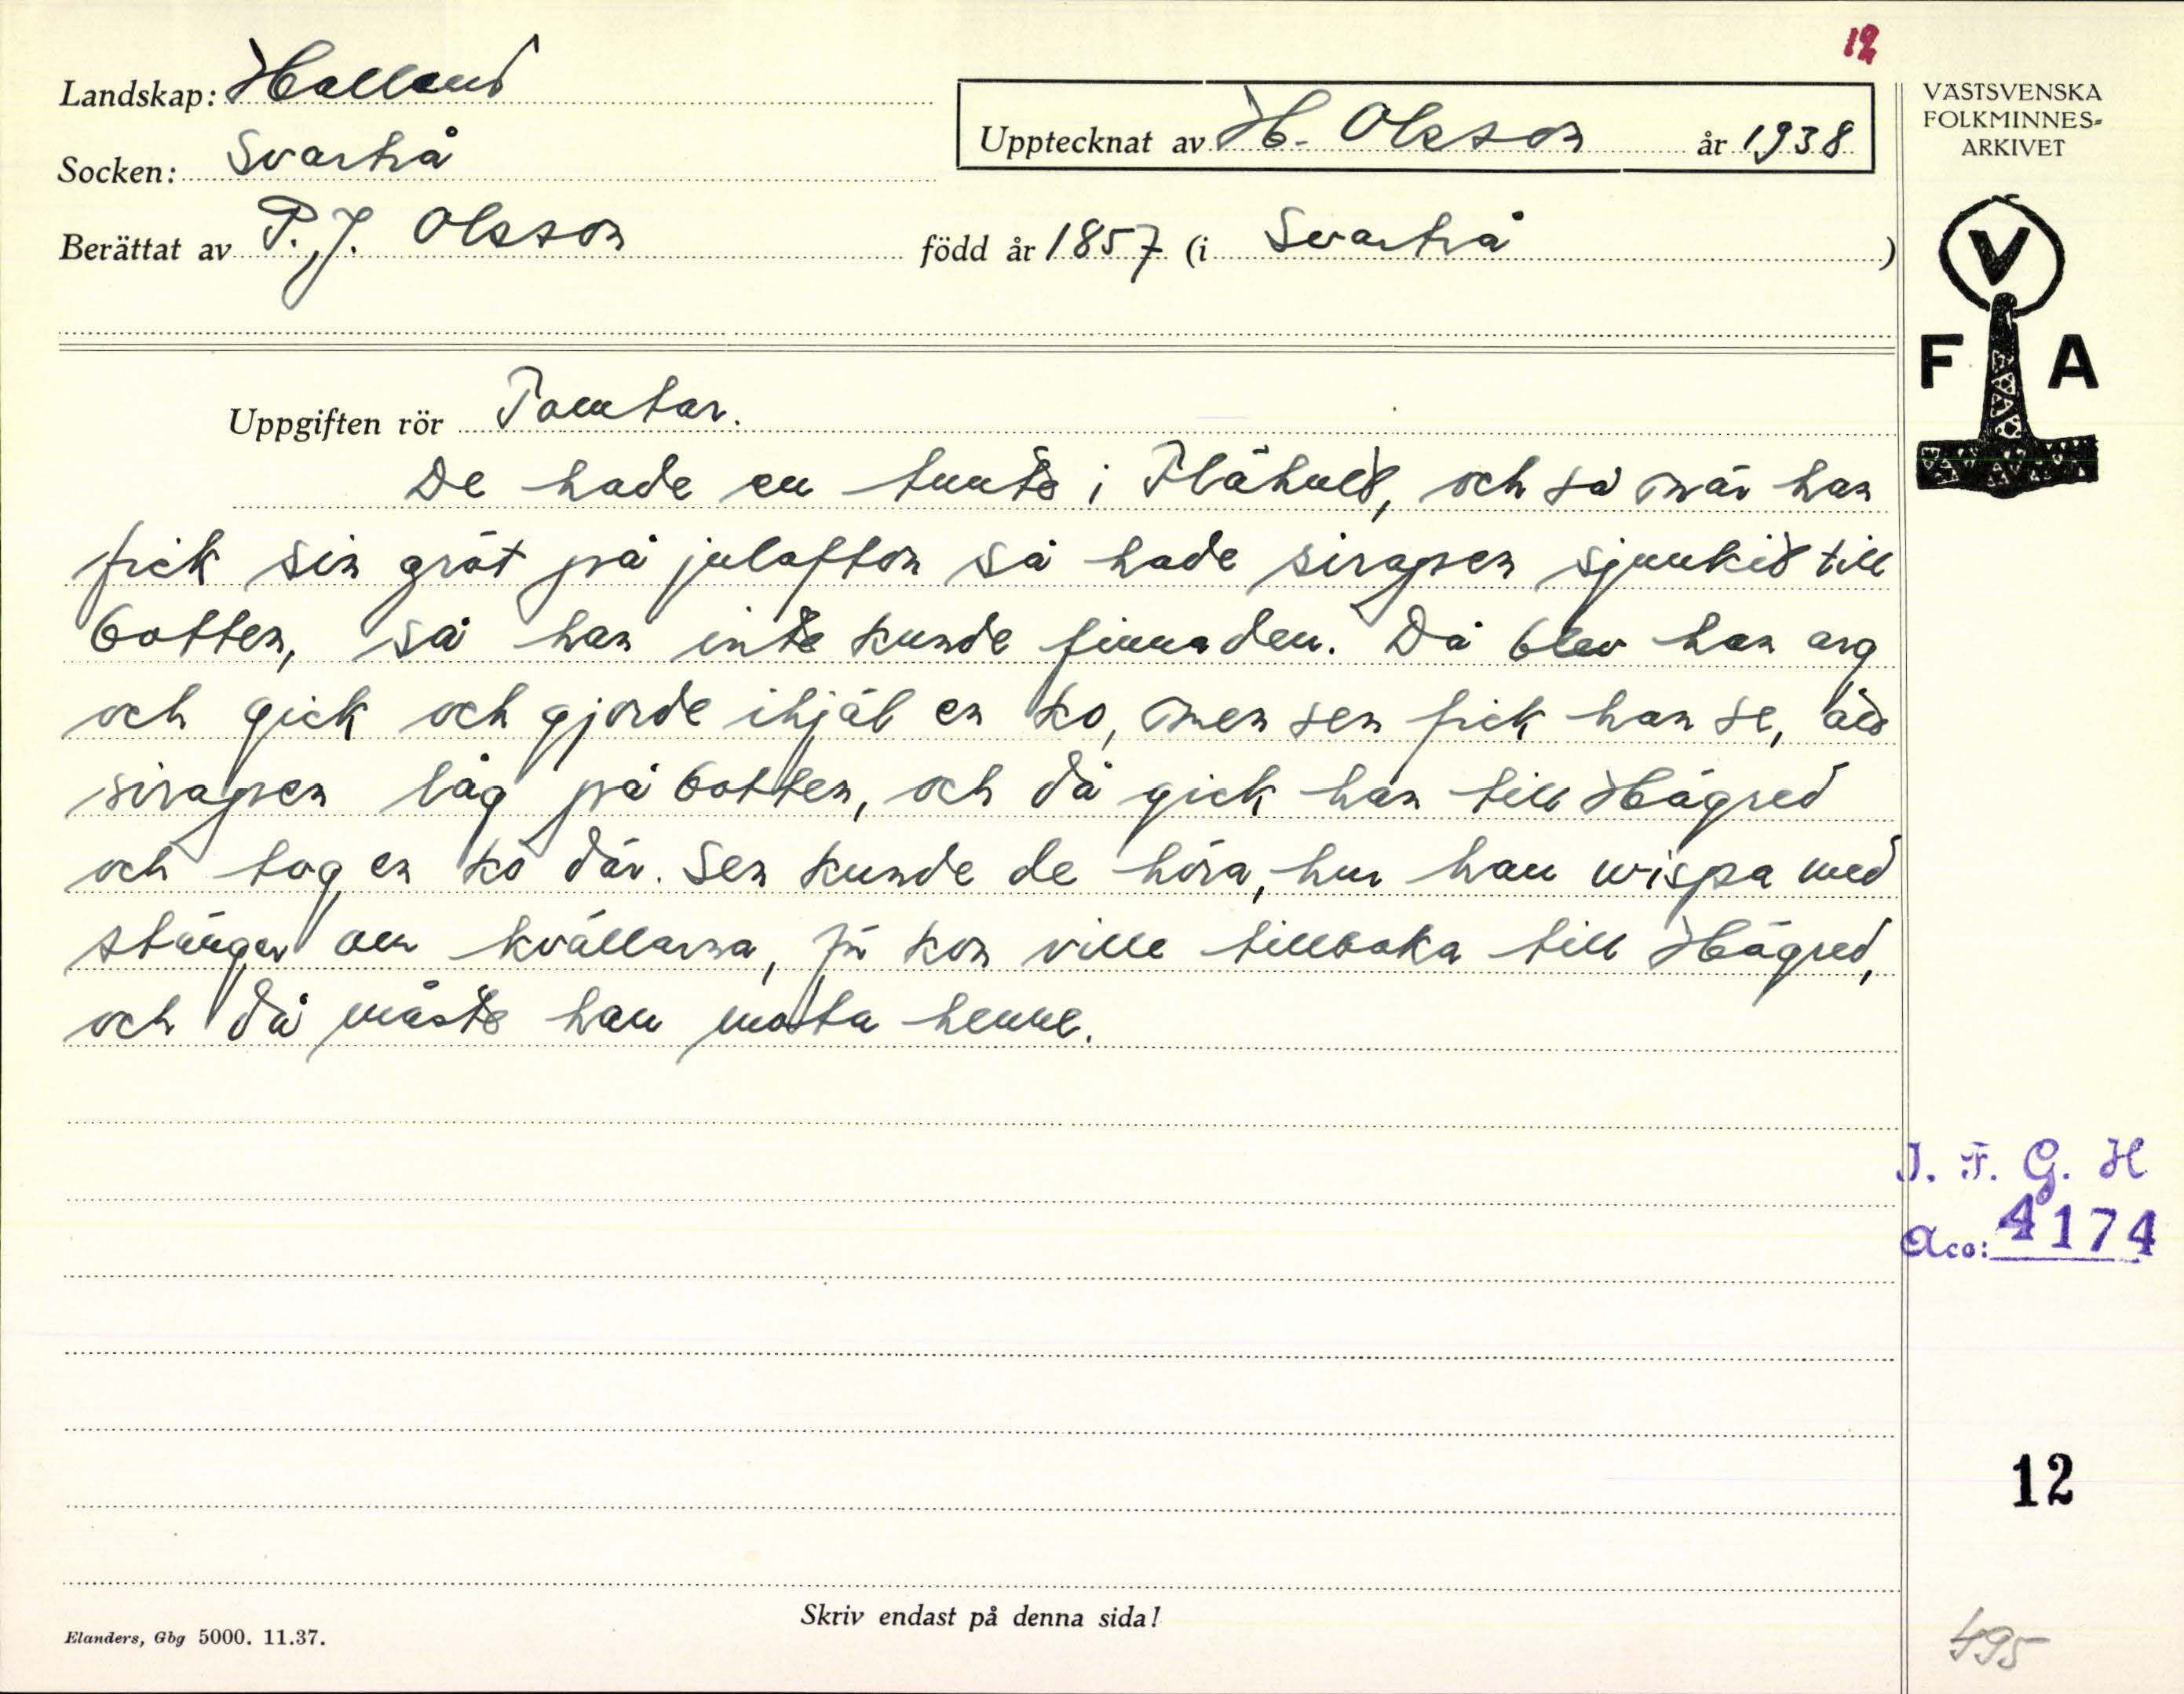 12
Landskap: Halland
Upptecknat av H. Olsson år 1938
Socken: Svartrå
Berättat av P. J. Olsson född år 1857 (i Svartrå)
VÄSTSVENSKA
FOLKMINNES-
ARKIVET
V
F A
Uppgiften rör Tomtar.
De hade en tomte i Flähult, och så när han
fick sin gröt på julafton så hade sirapen sjunkit till
botten, så han inte kunde finna den. Då blev han arg
och gick och gjorde ihjäl en ko, men sen fick han se, att
sirapen låg på botten, och då gick han till Hägred
och tog en ko där. Sen kunde de höra, hur han wispa med
stänger om kvällarna, för kon ville tillbaka till Hägred,
och då måste han mota henne.
I. F. G. H
Acc: 4174
12
Skriv endast på denna sida!
Elanders, Gbg 5000. 11.37.
495